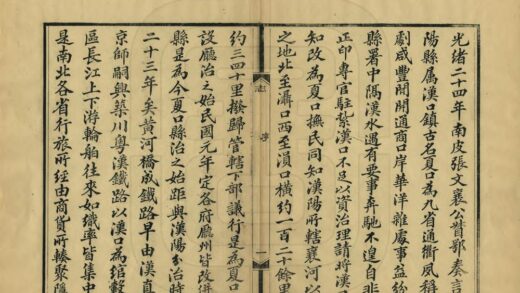 光緒二十四年南皮張文襄公督鄂奏言
陽縣屬漢口鎮古名夏口為九省通衢夙稱
劇咸豐間開通商口岸華洋雜處事益紛
縣署中隔漢水遇有要事奔馳不遑自非
正印專官駐紮漢口不足以資治理請將漢
知改為夏口撫民同知漢陽所轄襄河以
之地北至灄口西至溳口橫約一百二十餘里
約三四十里撥歸管轄下部議行是為夏口
設廳治之始民國元年定各府廳州皆改併
縣是為今夏口縣治之始距與漢陽分治時
二十三年矣黃河橋成鐵路早由漢直
京師嗣興築川粵漢鐵路以漢口為綰轂
區長江上下游輪舶往來如織率皆集中
是南北各省行旅所經由商貨所輳聚隱
志
序
一